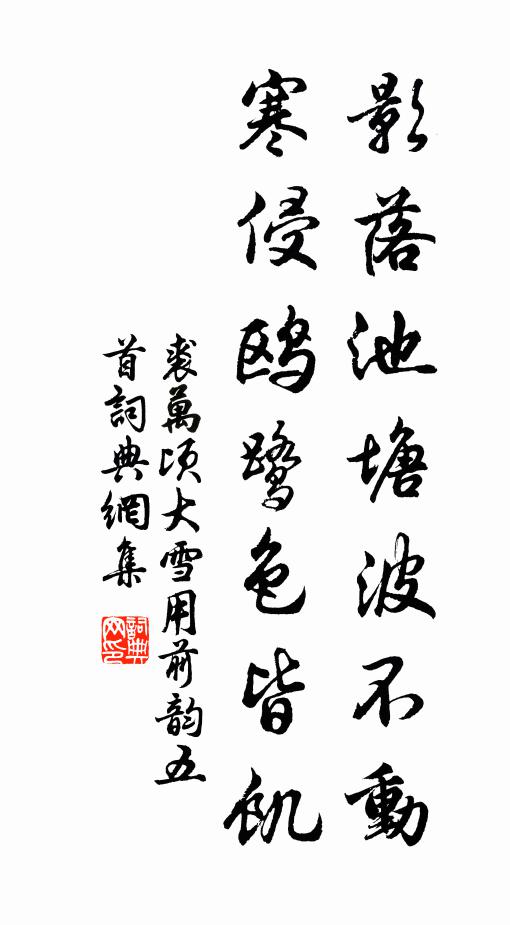 影落池塘波不動
寒侵鷗鷺色皆飢
裘萬頃大雪用前韵五
首詞典網集
詞典
网印